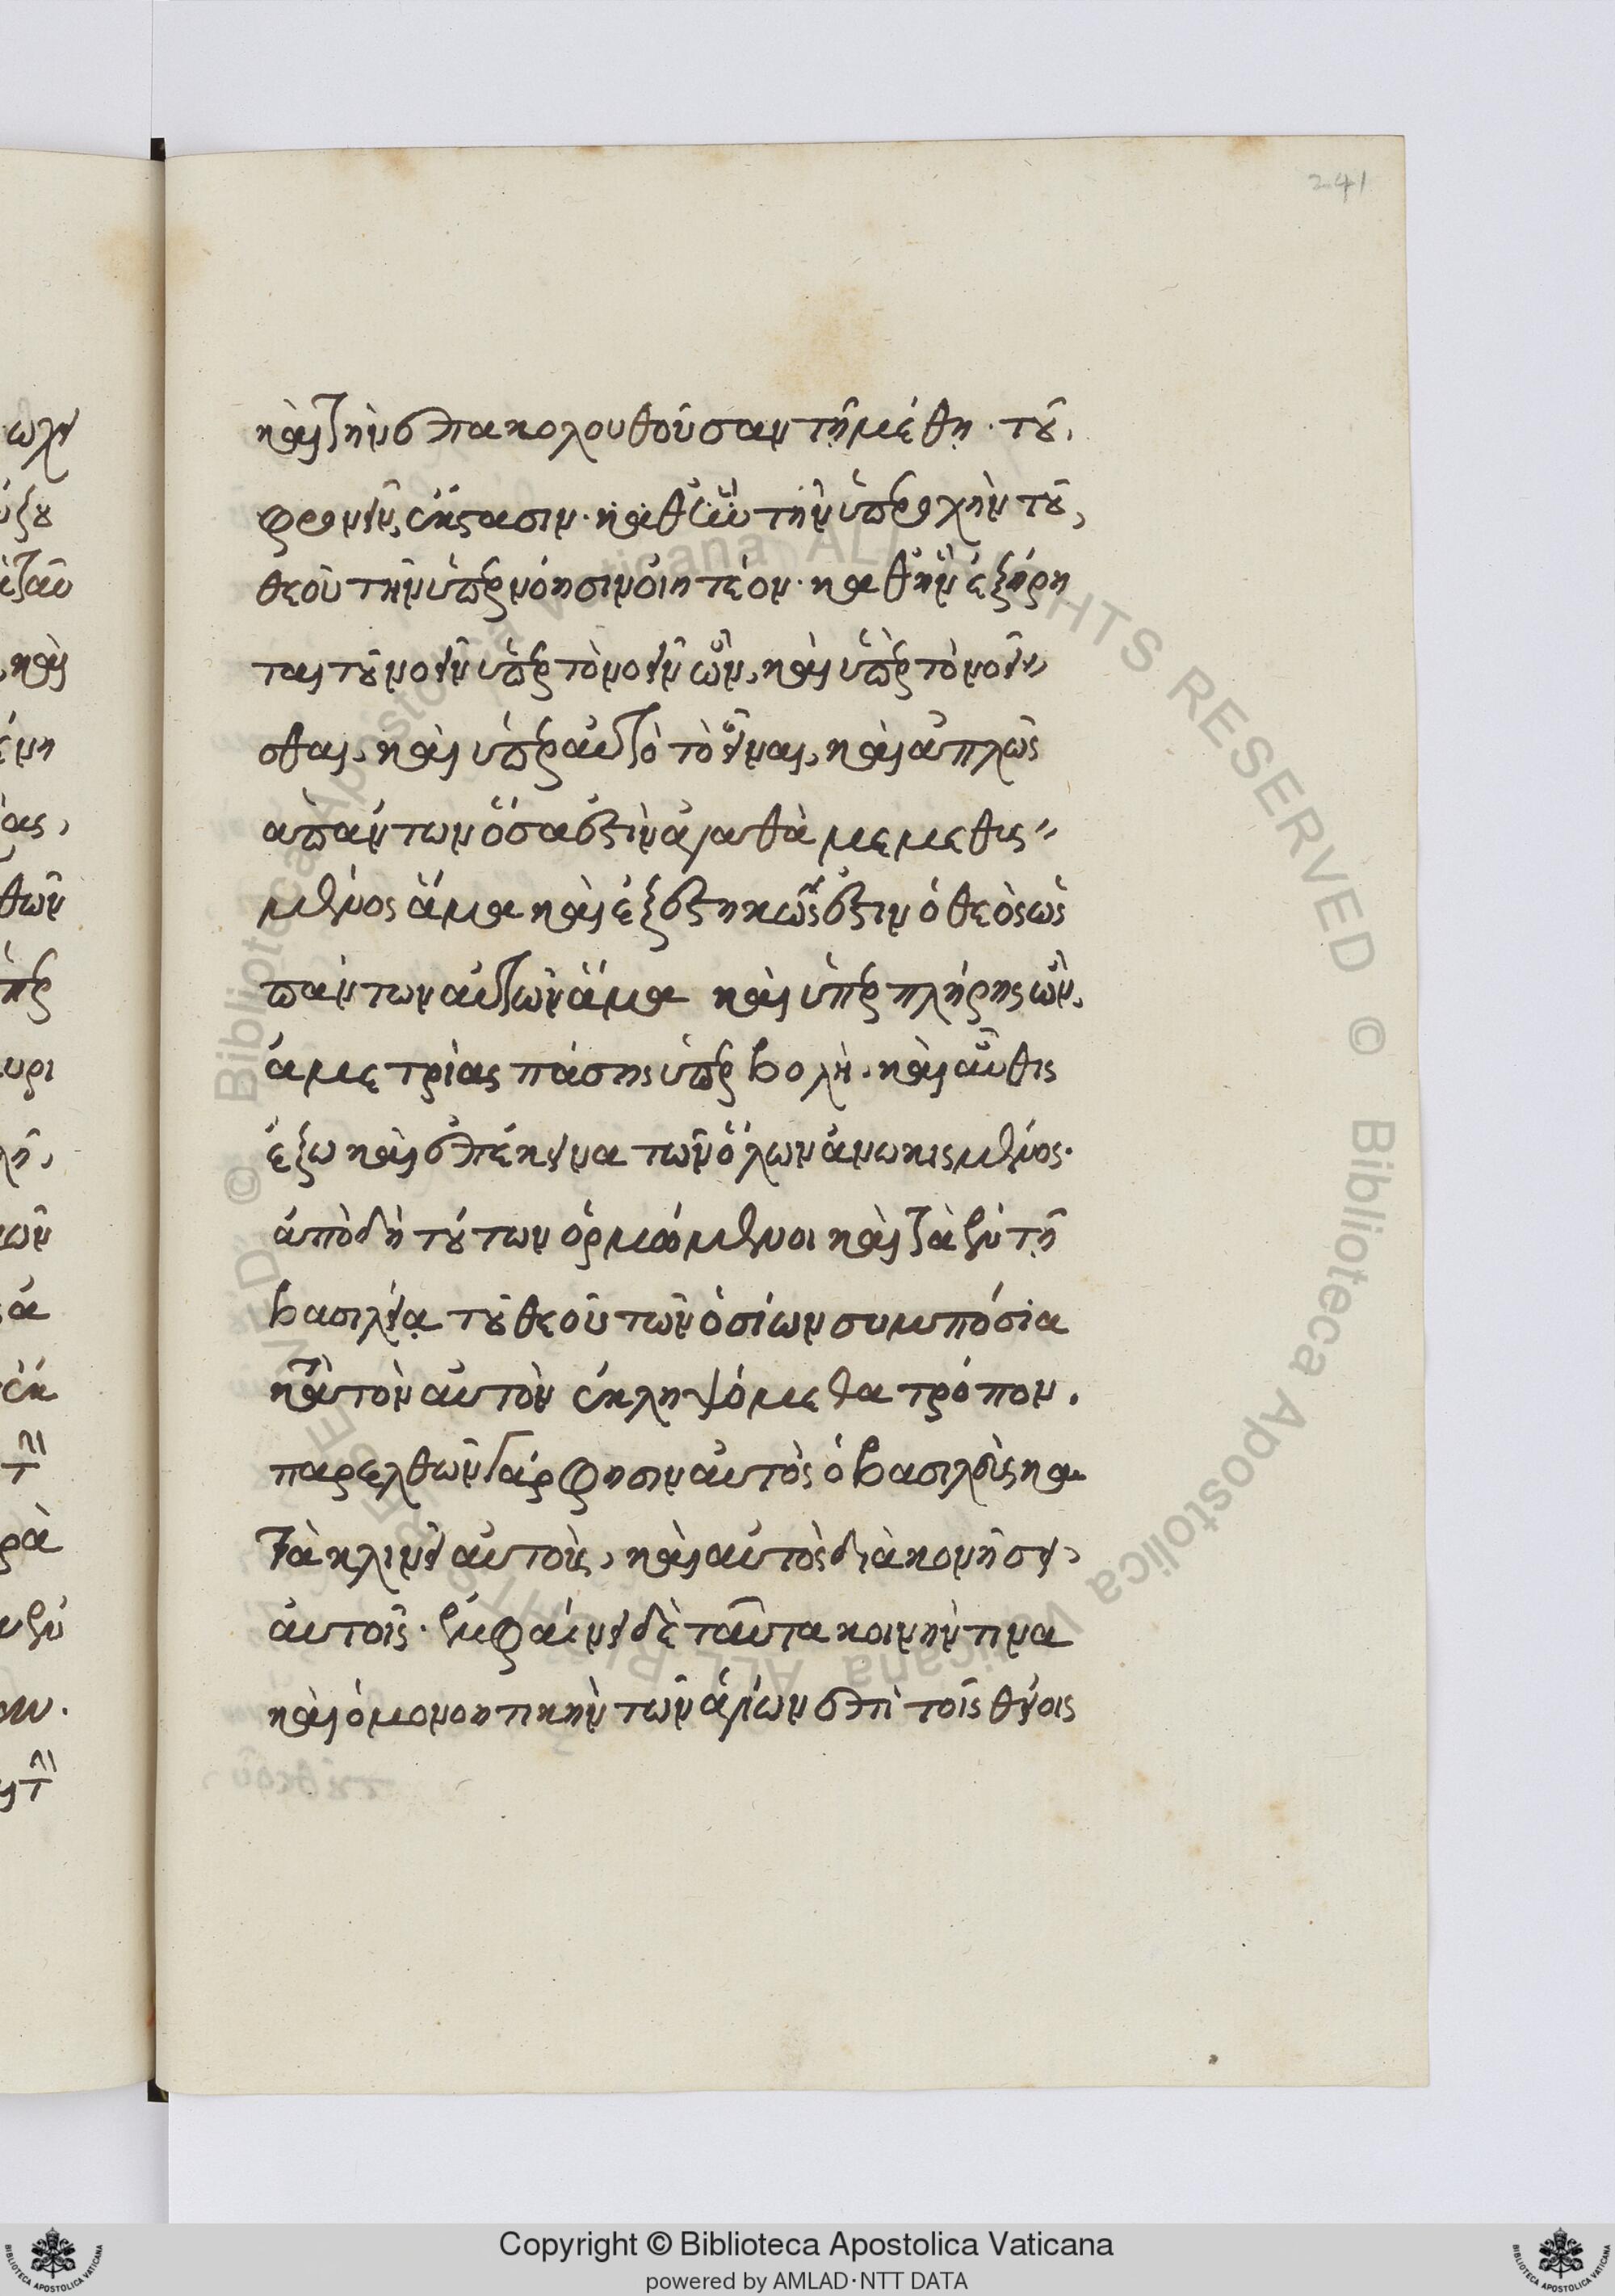 241
καὶ τὴν ἐπακολουθοῦσαν τῇ μέθῃ. τοῦ
φρονεῖν, ἔκστασιν. καθ' ἣν τὴν ὑπεροχὴν τοῦ,
θεοῦ τὴν ὑπὲρ νόησιν οἰητέον. καθ' ἣν ἐξῄρη
ται τοῦ νοεῖν ὑπὲρ τὸ νοεῖν ὢν, καὶ ὑπὲρ τὸ νοεῖ
σθαι, καὶ ὑπὲρ αὐτὸ τὸ εἶναι, καὶ ἁπλῶς
ἁπάντων ὅσα ἐστὶν ἀγαθὰ μεμεθυσ
μένος ἅμα καὶ ἐξεστηκώς ἐστιν ὁ θεὸς ὡς
πάντων αὐτῶν ἅμα καὶ ὑπὲρ πλήρης ὢν,
ἀμετρίας πάσης ὑπερβολὴ. καὶ αὖθις
ἔξω καὶ ἐπέκεινα τῶν ὅλων ἀνῳκισμένος.
ἀπὸ δὴ τούτων ὁρμώμενοι καὶ τὰ ἐν τῇ
βασιλείᾳ τοῦ θεοῦ τῶν ὁσίων συμπόσια
κατὰ τὸν αὐτὸν ἐκληψόμεθα τρόπον.
παρελθὼν γάρ φησιν αὐτὸς ὁ βασιλεὺς κα
τακλινεῖ αὐτοὺς, καὶ αὐτὸς διακονήσει,
αὐτοῖς. ἐμφαίνει δὲ ταῦτα κοινήν τινα
καὶ ὁμονοητικὴν τῶν ἁγίων ἐπὶ τοῖς θείοις
Copyright © Biblioteca Apostolica Vaticana
powered by AMLAD·NTT DATA